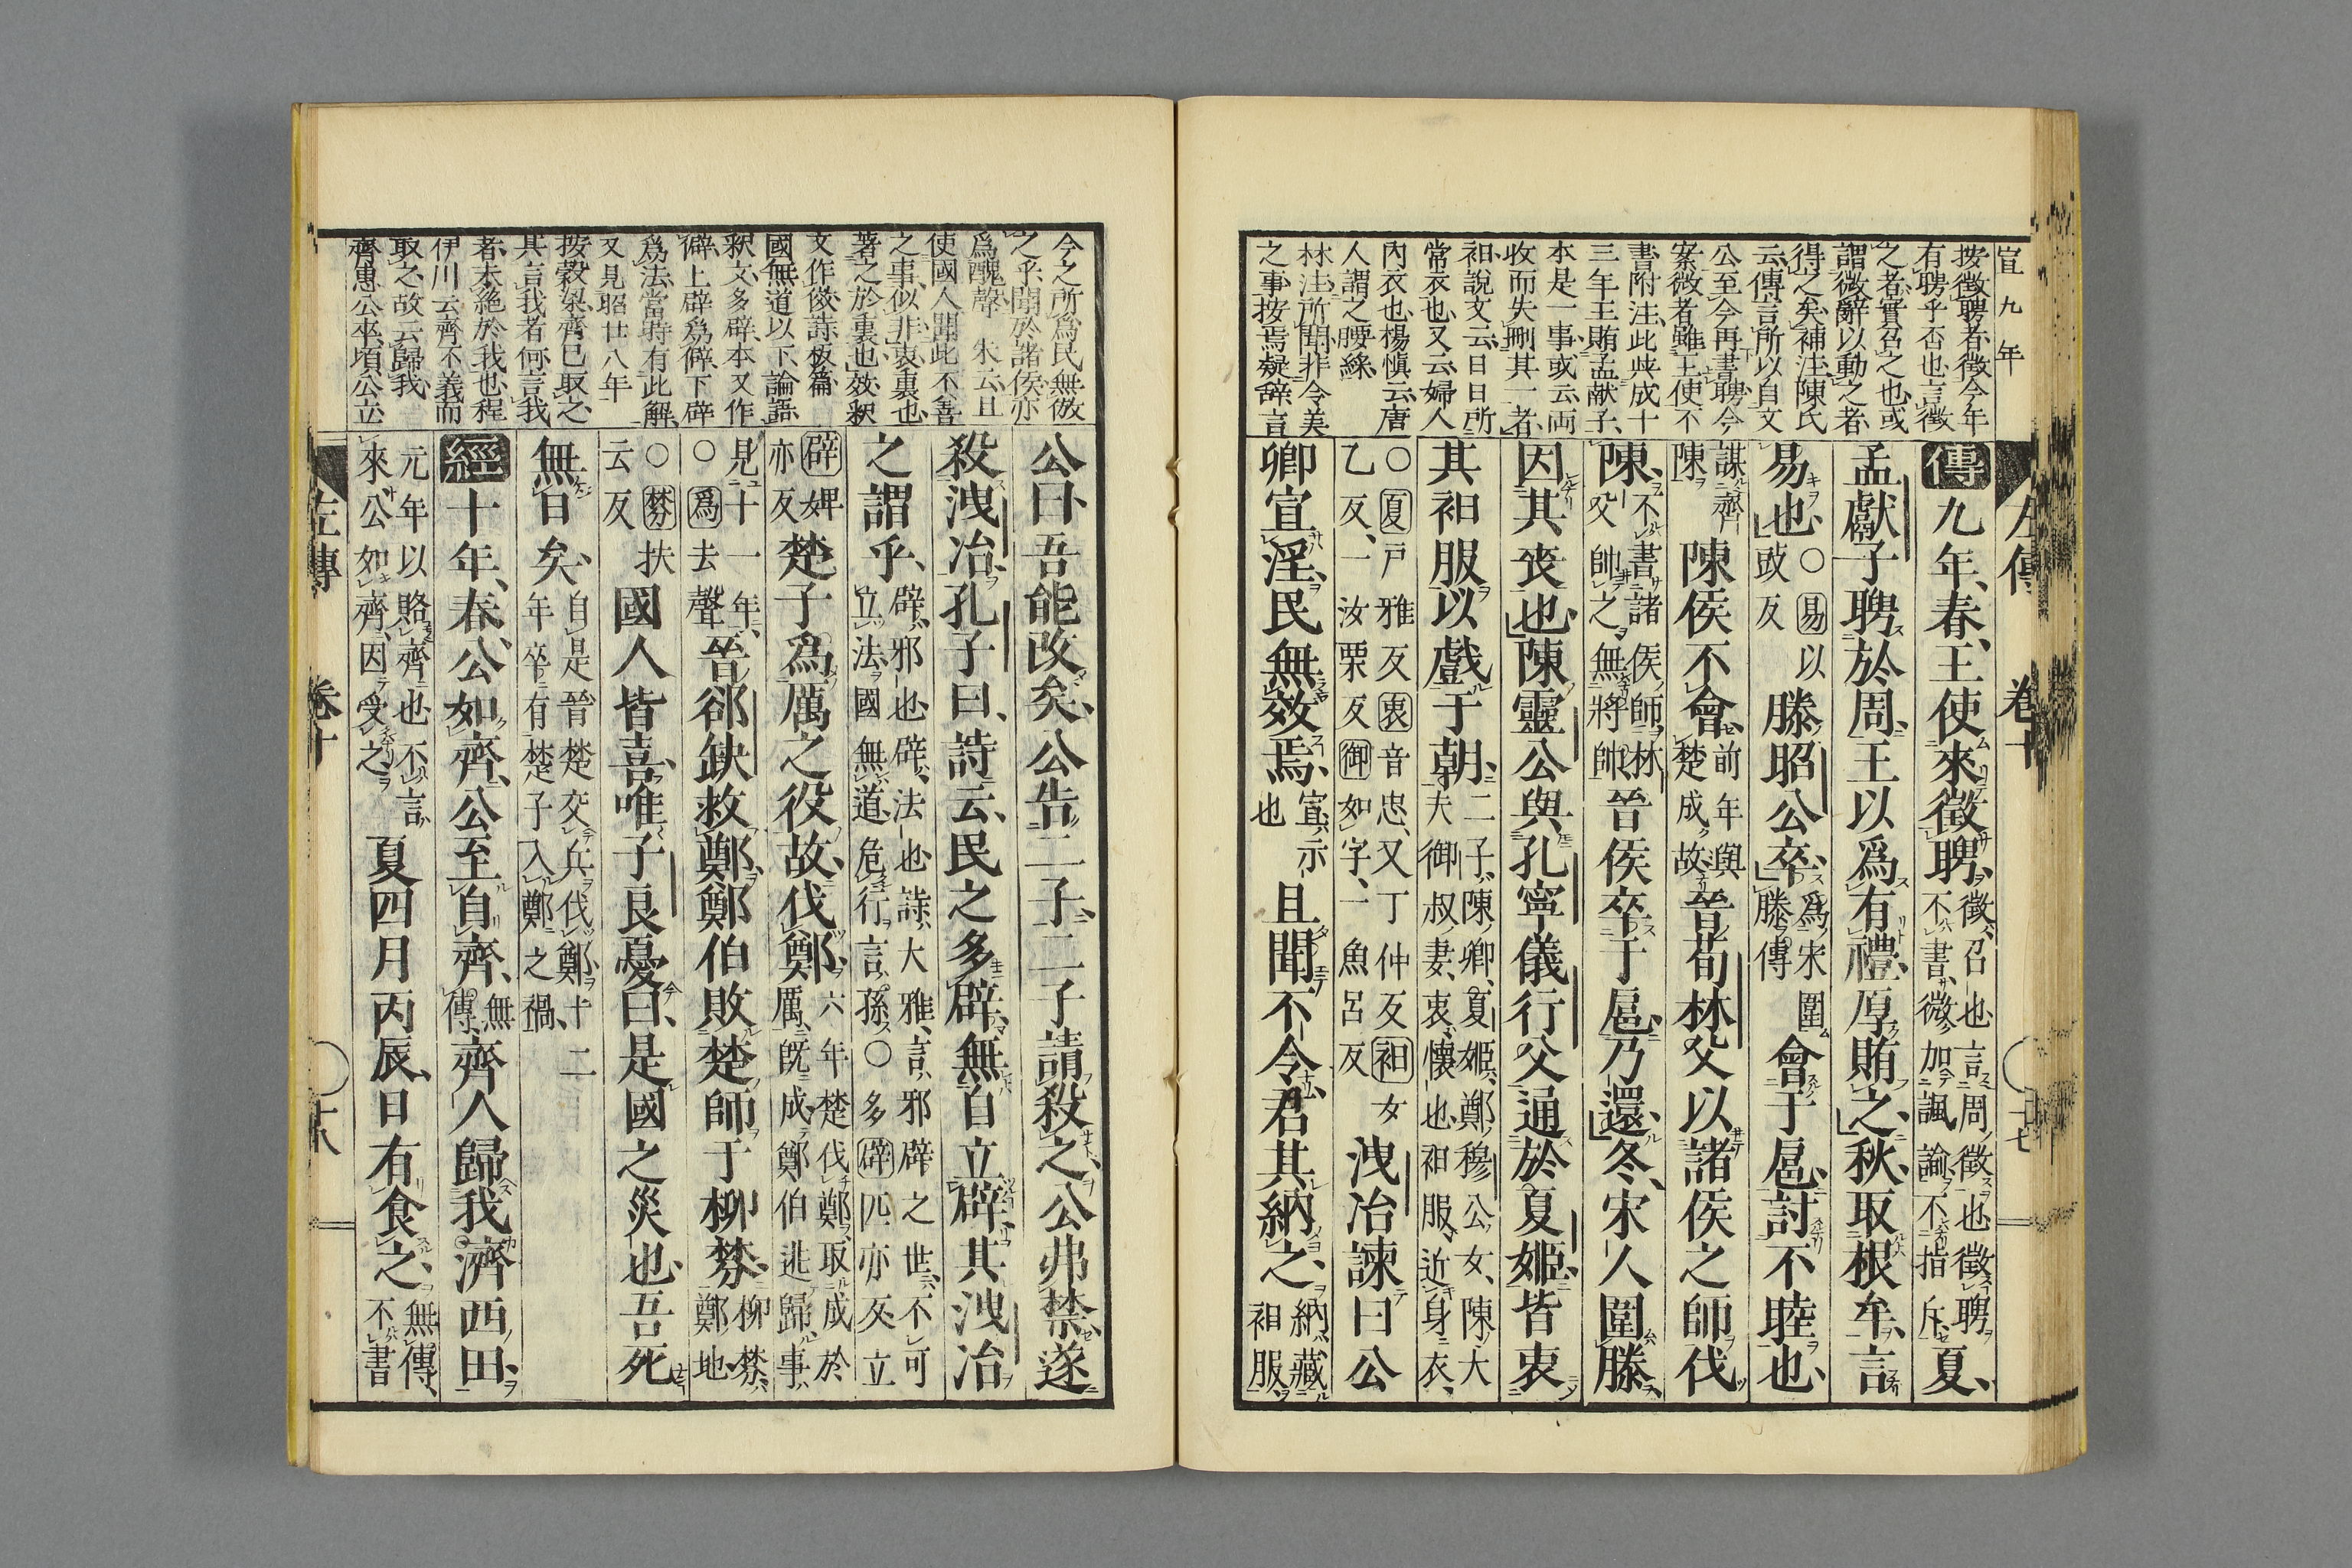 宣九年
按徵聘者徵今年
有聘乎否也言徵
之者實召之也或
謂微辭以動之者
得之矣補注陳氏
云傳言所以自文
公至今再書聘今
案微者雖王使不
書附注此與成十
三年王賄孟献子
本是一事或云両
收而失刪其一者
衵說文云日日所
常衣也又云婦人
內衣也楊愼云唐
人謂之腰綵
林注所聞非令美
之事按焉疑辞言
左傳 卷十 十七
傳九年春王使來徵聘徵召也言周徵也徵聘夏
不書微加諷諭不指斥
孟獻子聘於周王以爲有禮厚賄之秋取根牟言
易也○易以豉反滕昭公卒爲宋圍滕傳會于扈討不睦也
謀齊陳陳侯不會前年與楚成故晉荀林父以諸侯之師伐
陳不書諸侯師林父帥之無將帥晉侯卒于扈乃還冬宋人圍滕
因其喪也陳靈公與孔寧儀行父通於夏姬皆衷
其衵服以戲于朝二子陳卿夏姬鄭穆公女陳大夫御叔妻衷懷也衵服近身衣
○夏戸雅反衷音忠又丁仲反衵女乙反一汝栗反御如字一魚呂反洩冶諫曰公
卿宣淫民無效焉宣示也且聞不令君其納之納藏衵服
今之所爲民無傚
之乎聞於諸侯亦
爲醜聲 朱云且
使國人聞此不善
之事似非衷裏也
著之於裏也效釈
文作傚詩板篇
國無道以下論語
釈文多辟本又作
僻上辟爲僻下辟
爲法當時有此解
又見昭廿八年
按穀梁齊已取之
其言我者何言我
者未絕於我也程
伊川云齊不義而
取之故云歸我
齊惠公卒頃公立
公曰吾能改矣公告二子二子請殺之公弗禁遂
殺洩冶孔子曰詩云民之多辟無自立辟其洩冶
之謂乎辟邪也辟法也詩大雅言邪辟之世不可立法國無道危行言孫○多辟匹亦反立
辟婢亦反楚子爲厲之役故伐鄭六年楚伐鄭取成於厲既成鄭伯逃歸事
見十一年○爲去聲晉郤缺救鄭鄭伯敗楚師于柳棼柳棼鄭地
○棼扶云反國人皆喜唯子良憂曰是國之災也吾死
無日矣自是晉楚交兵伐鄭十二年卒有楚子入鄭之禍
經十年春公如齊公至自齊無傳齊人歸我濟西田
元年以賂齊也不言來公如齊因受之夏四月丙辰日有食之無傳不書
左傳 卷十 十八